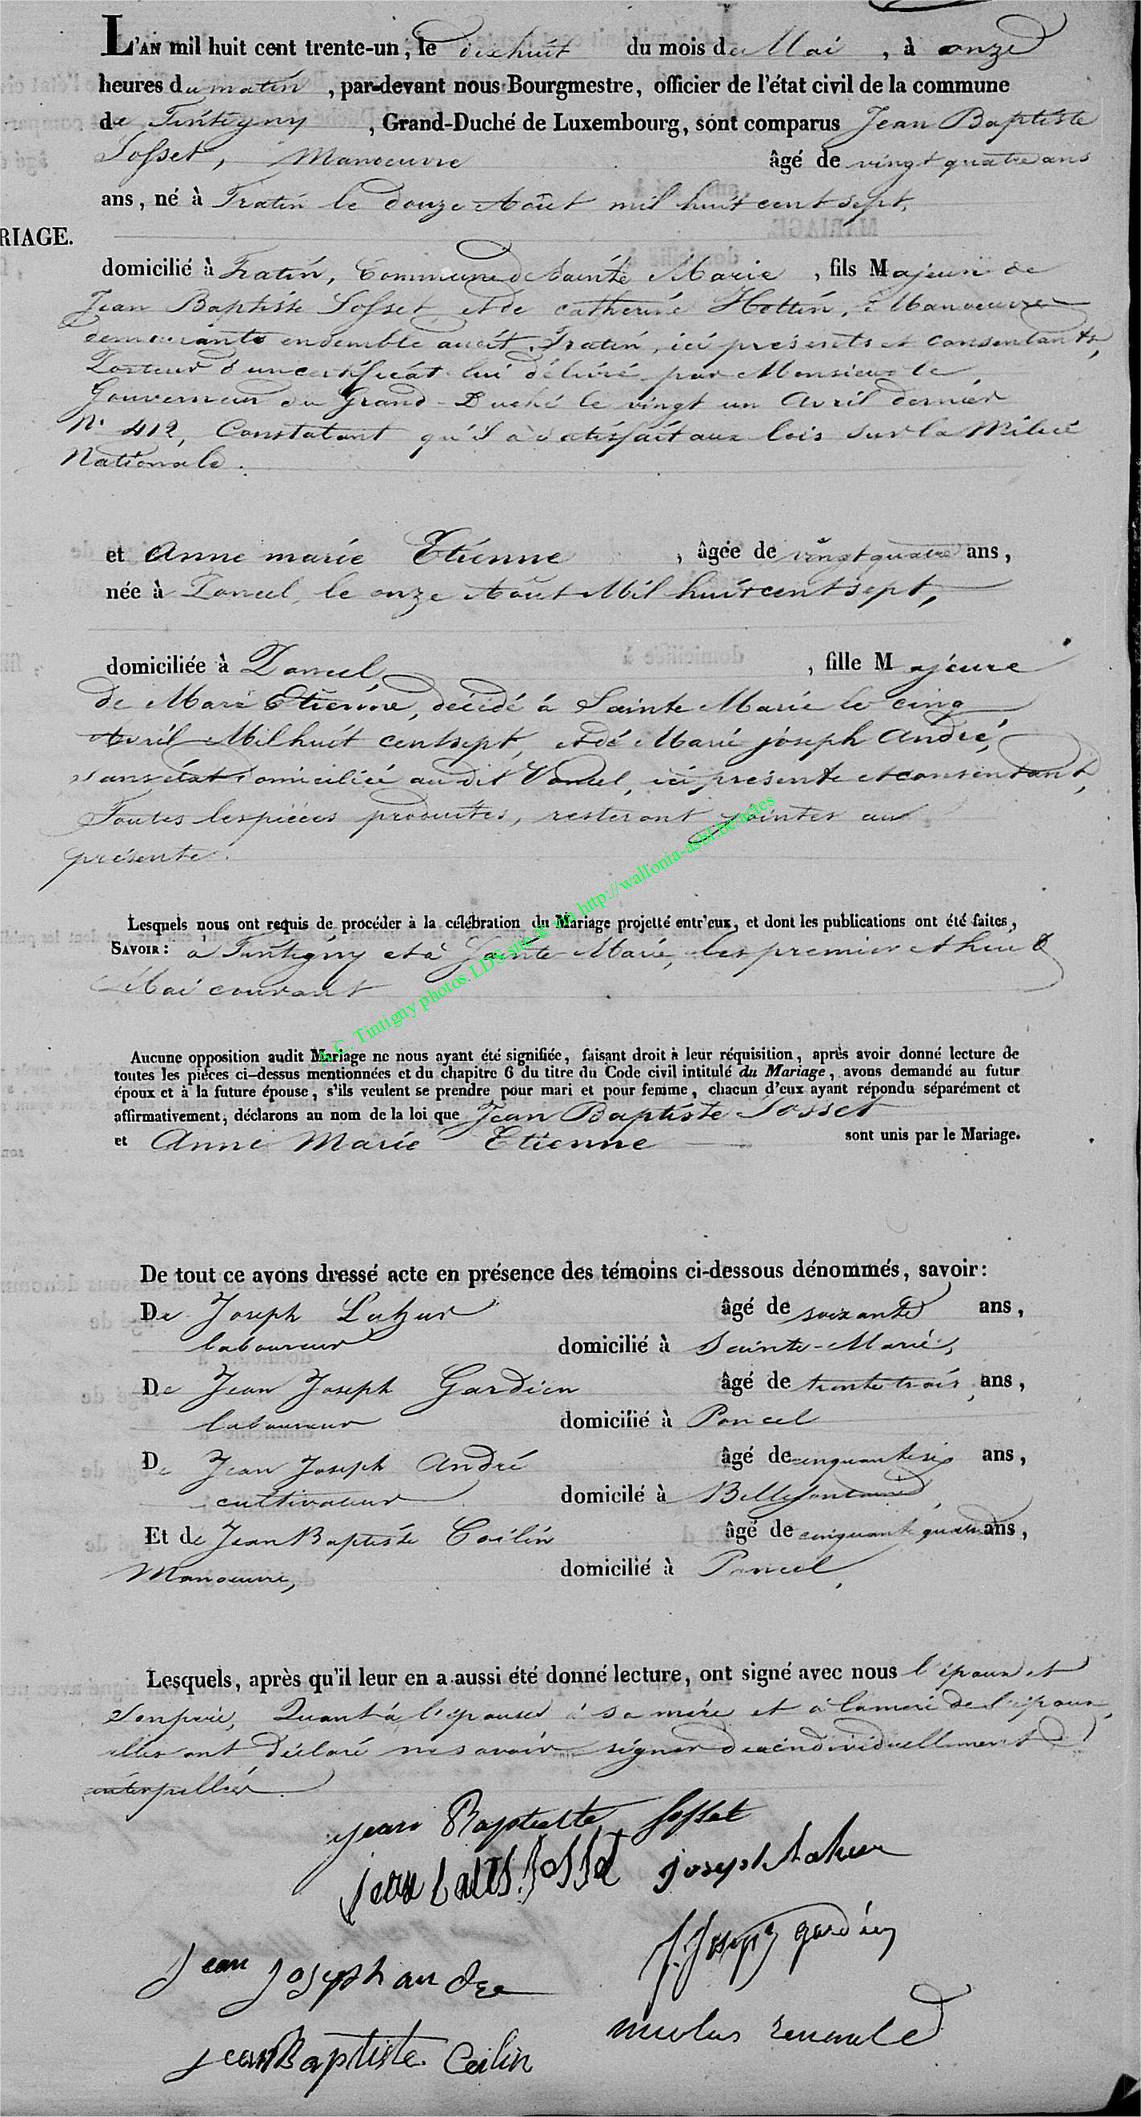 L'AN mil huit cent trente-un, le dixhuit du mois de Mai, à onze
heures du matin, par-devant nous Bourgmestre, officier de l'état civil de la commune
de Tintigny, Grand-Duché de Luxembourg, sont comparus Jean Baptiste
Sosset, Manoeuvre âgé de vingt quatre ans
ans, né à Fratin le douze Août mil huit cent sept,
RIAGE.
domicilié à Fratin, Commune de Sainte Marie, fils Majeur de
Jean Baptiste Sosset et de catherine Hottin, Manoeuvre
demeurants ensemble audit Fratin, ici presents et consentants,
Porteur d'un certificat lui délivré par Monsieur le
Gouverneur du Grand-Duché le vingt un Avril dernier
N° 412, Constatant qu'il a satisfait aux lois sur la Milice
Nationale.
et Anne marie Etienne, âgée de vingt quatre ans,
née à Poncel, le onze Août Mil huit cent sept,
domiciliée à Poncel, fille Majeure
de Marie Etienne, décédé à Sainte Marie le cinq
Avril Mil huit cent sept, et de Marie joseph André,
sans état domiciliée au dit Poncel, ici presente et consentant,
Toutes les pièces produites, resteront jointes au
présente.
Lesquels nous ont requis de procéder à la célébration du Mariage projetté entr'eux, et dont les publications ont été faites,
SAVOIR: à Tintigny et à Sainte Marie, les premier et huit
Mai courant
A.C. Tintigny photos LDS site & via http://wallonia-asbl.be/actes
Aucune opposition audit Mariage ne nous ayant été signifiée, faisant droit à leur réquisition, après avoir donné lecture de
toutes les pièces ci-dessus mentionnées et du chapitre 6 du titre du Code civil intitulé du Mariage, avons demandé au futur
époux et à la future épouse, s'ils veulent se prendre pour mari et pour femme, chacun d'eux ayant répondu séparément et
affirmativement, déclarons au nom de la loi que Jean Baptiste Sosset
et Anne Marie Etienne sont unis par le Mariage.
De tout ce avons dressé acte en présence des témoins ci-dessous dénommés, savoir:
De Joseph Lahur âgé de soixante ans,
laboureur domicilié à Sainte-Marie,
De Jean Joseph Gardien âgé de trente trois ans,
laboureur domicilié à Poncel
De Jean Joseph André âgé de cinquante six ans,
cultivateur domicilé à Bellefontaine,
Et de Jean Baptiste Coilin âgé de cinquante quatre ans,
Manoeuvre, domicilié à Poncel,
Lesquels, après qu'il leur en a aussi été donné lecture, ont signé avec nous l'époux et
son père, Quant à l'épouse à sa mère et à la mère de l'époux,
elles ont déclaré ne savoir signer de ce individuellement
interpellées.
jean Baptiste Sosset
jean bapts. Sosset joseph Lahur
J. Joseph gardien
jean joseph andre
nicolas renauld
jean Baptiste Coilin